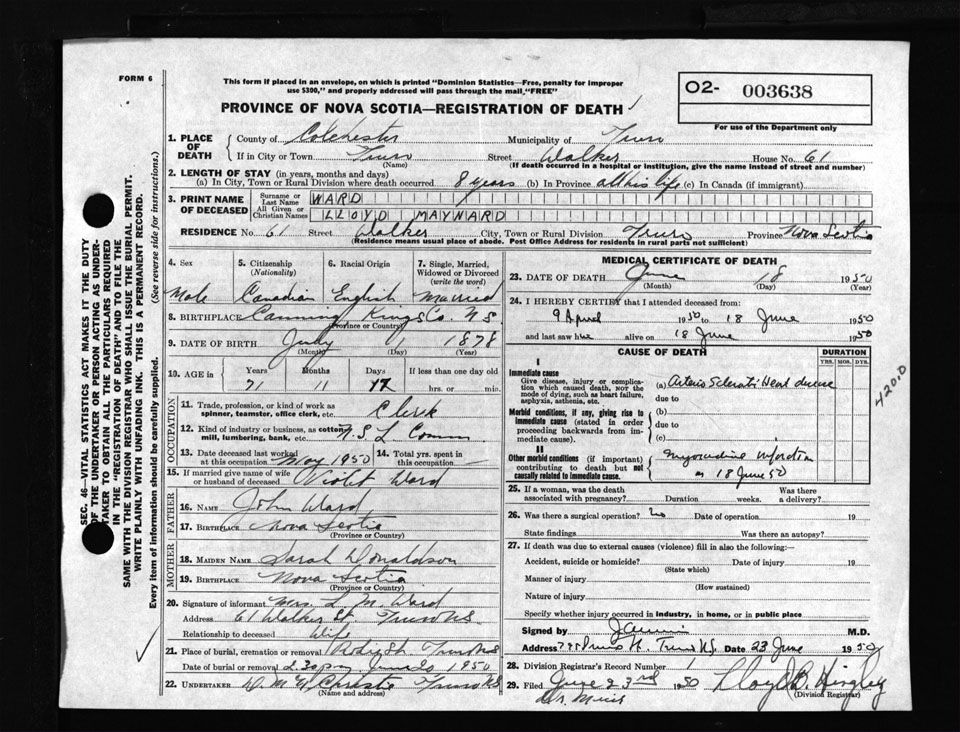 FORM 6
This form if placed in an envelope, on which is printed "Dominion Statistics—Free, penalty for improper
use $300," and properly addressed will pass through the mail "FREE"
PROVINCE OF NOVA SCOTIA—REGISTRATION OF DEATH
O2- 003638
For use of the Department only
1. PLACE OF DEATH
County of Colchester Municipality of Truro
If in City or Town Truro Street Walker House No. 61
(Name) (If death occurred in a hospital or institution, give the name instead of street and number)
2. LENGTH OF STAY (in years, months and days)
(a) In City, Town or Rural Division where death occurred 8 years (b) In Province all his life (c) In Canada (if immigrant)
3. PRINT NAME OF DECEASED
Surname or Last Name WARD
All Given or Christian Names LLOYD MAYWARD
RESIDENCE No. 61 Street Walker City, Town or Rural Division Truro Province Nova Scotia
(Residence means usual place of abode. Post Office Address for residents in rural parts not sufficient)
4. Sex 5. Citizenship (Nationality) 6. Racial Origin 7. Single, Married, Widowed or Divorced (write the word)
Male Canadian English Married
8. BIRTHPLACE Canning Kings Co. N S
(Province or Country)
9. DATE OF BIRTH July 1 1878
(Month) (Day) (Year)
10. AGE in Years Months Days If less than one day old
71 11 17 hrs. or min.
OCCUPATION
11. Trade, profession, or kind of work as
spinner, teamster, office clerk, etc. Clerk
12. Kind of industry or business, as cotton
mill, lumbering, bank, etc. N.S. L Comm
13. Date deceased last worked
at this occupation May 1950
14. Total yrs. spent in
this occupation
15. If married give name of wife
or husband of deceased Violet Ward
FATHER
16. Name John Ward
17. Birthplace Nova Scotia
(Province or Country)
MOTHER
18. Maiden Name Sarah Donaldson
19. Birthplace Nova Scotia
(Province or Country)
20. Signature of informant Mrs. L M. Ward
Address 61 Walker St. Truro NS
Relationship to deceased Wife
21. Place of burial, cremation or removal Truro NS
Date of burial or removal 2.30 pm June 20 1950
22. UNDERTAKER Christie Truro NS
(Name and address)
MEDICAL CERTIFICATE OF DEATH
23. DATE OF DEATH June 18 1950
(Month) (Day) (Year)
24. I HEREBY CERTIFY that I attended deceased from:
9 April 1950 to 18 June 1950
and last saw h alive on 18 June 1950
CAUSE OF DEATH
DURATION
YRS. MOS. DYS.
I
Immediate cause
Give disease, injury or complication
which caused death, not the
mode of dying, such as heart failure,
asphyxia, asthenia, etc.
(a) Arterio Sclerotic Heart disease
due to
Morbid conditions, if any, giving rise to
immediate cause (stated in order
proceeding backwards from immediate
cause).
(b)
due to
(c)
II
Other morbid conditions (if important)
contributing to death but not
causally related to immediate cause.
myocardial infarction
18 June 50
420.0
25. If a woman, was the death
associated with pregnancy? Duration weeks. Was there
a delivery?
26. Was there a surgical operation? no Date of operation 19
State findings Was there an autopsy?
27. If death was due to external causes (violence) fill in also the following:—
Accident, suicide or homicide? Date of injury 19
(State which)
Manner of injury
(How sustained)
Nature of injury
Specify whether injury occurred in industry, in home, or in public place
Signed by M.D.
Address Prince St. Truro N.S. Date 23 June 1950
28. Division Registrar's Record Number 1
29. Filed June 23rd 1950 Lloyd B. Hingley
(Division Registrar)
SEC. 46—VITAL STATISTICS ACT MAKES IT THE DUTY
OF THE UNDERTAKER OR PERSON ACTING AS UNDERTAKER
TO OBTAIN ALL THE PARTICULARS REQUIRED
IN THE "REGISTRATION OF DEATH" AND TO FILE THE
SAME WITH THE DIVISION REGISTRAR WHO SHALL ISSUE THE BURIAL PERMIT.
WRITE PLAINLY WITH UNFADING INK. THIS IS A PERMANENT RECORD.
Every item of information should be carefully supplied. (See reverse side for instructions.)